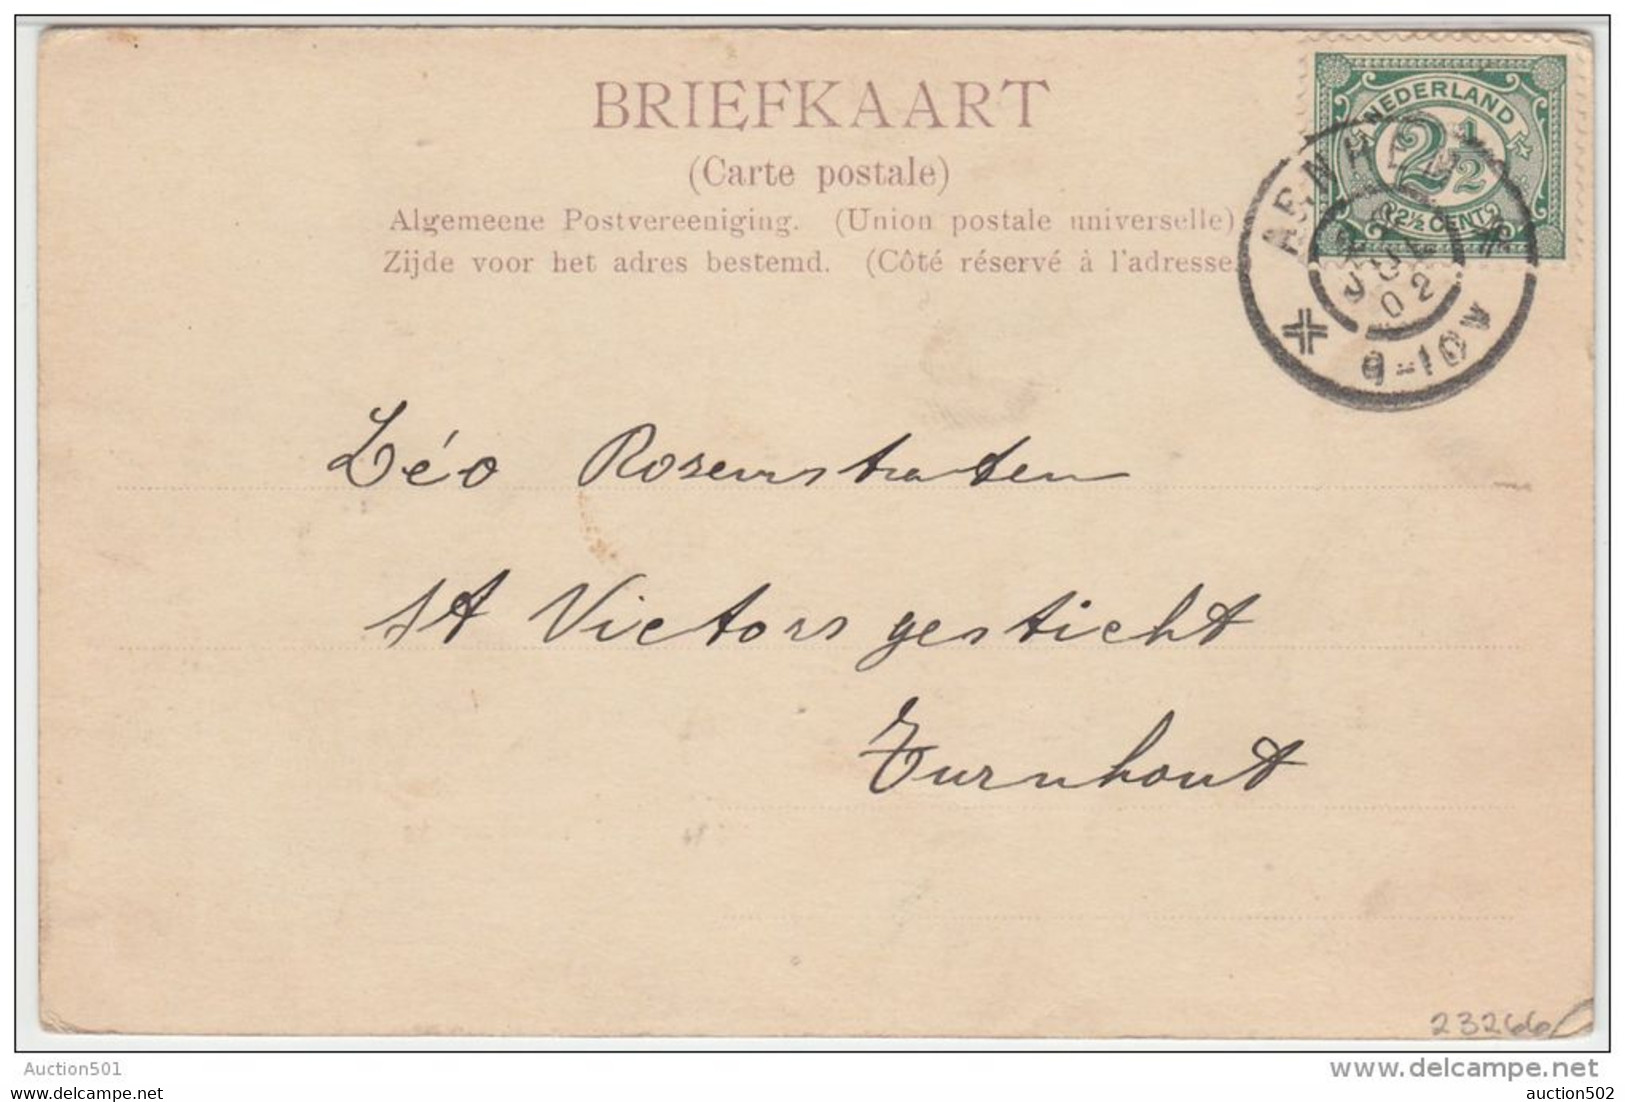 BRIEFKAART
(Carte postale)
Algemeene Postvereeniging. (Union postale universelle)
Zijde voor het adres bestemd. (Côté réservé à l'adresse.
NEDERLAND
2½
2½ CENT
ARNHEM
JUL
02
9-10V
Léo Rosenstraten
St Victors gesticht
Turnhout
23266
Auction501
delcampe.net
auction502